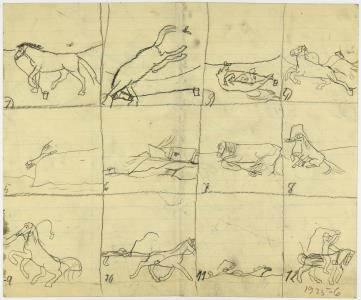 1)
3)
4)
5
6
7
8
9
10
11
12
1925-6